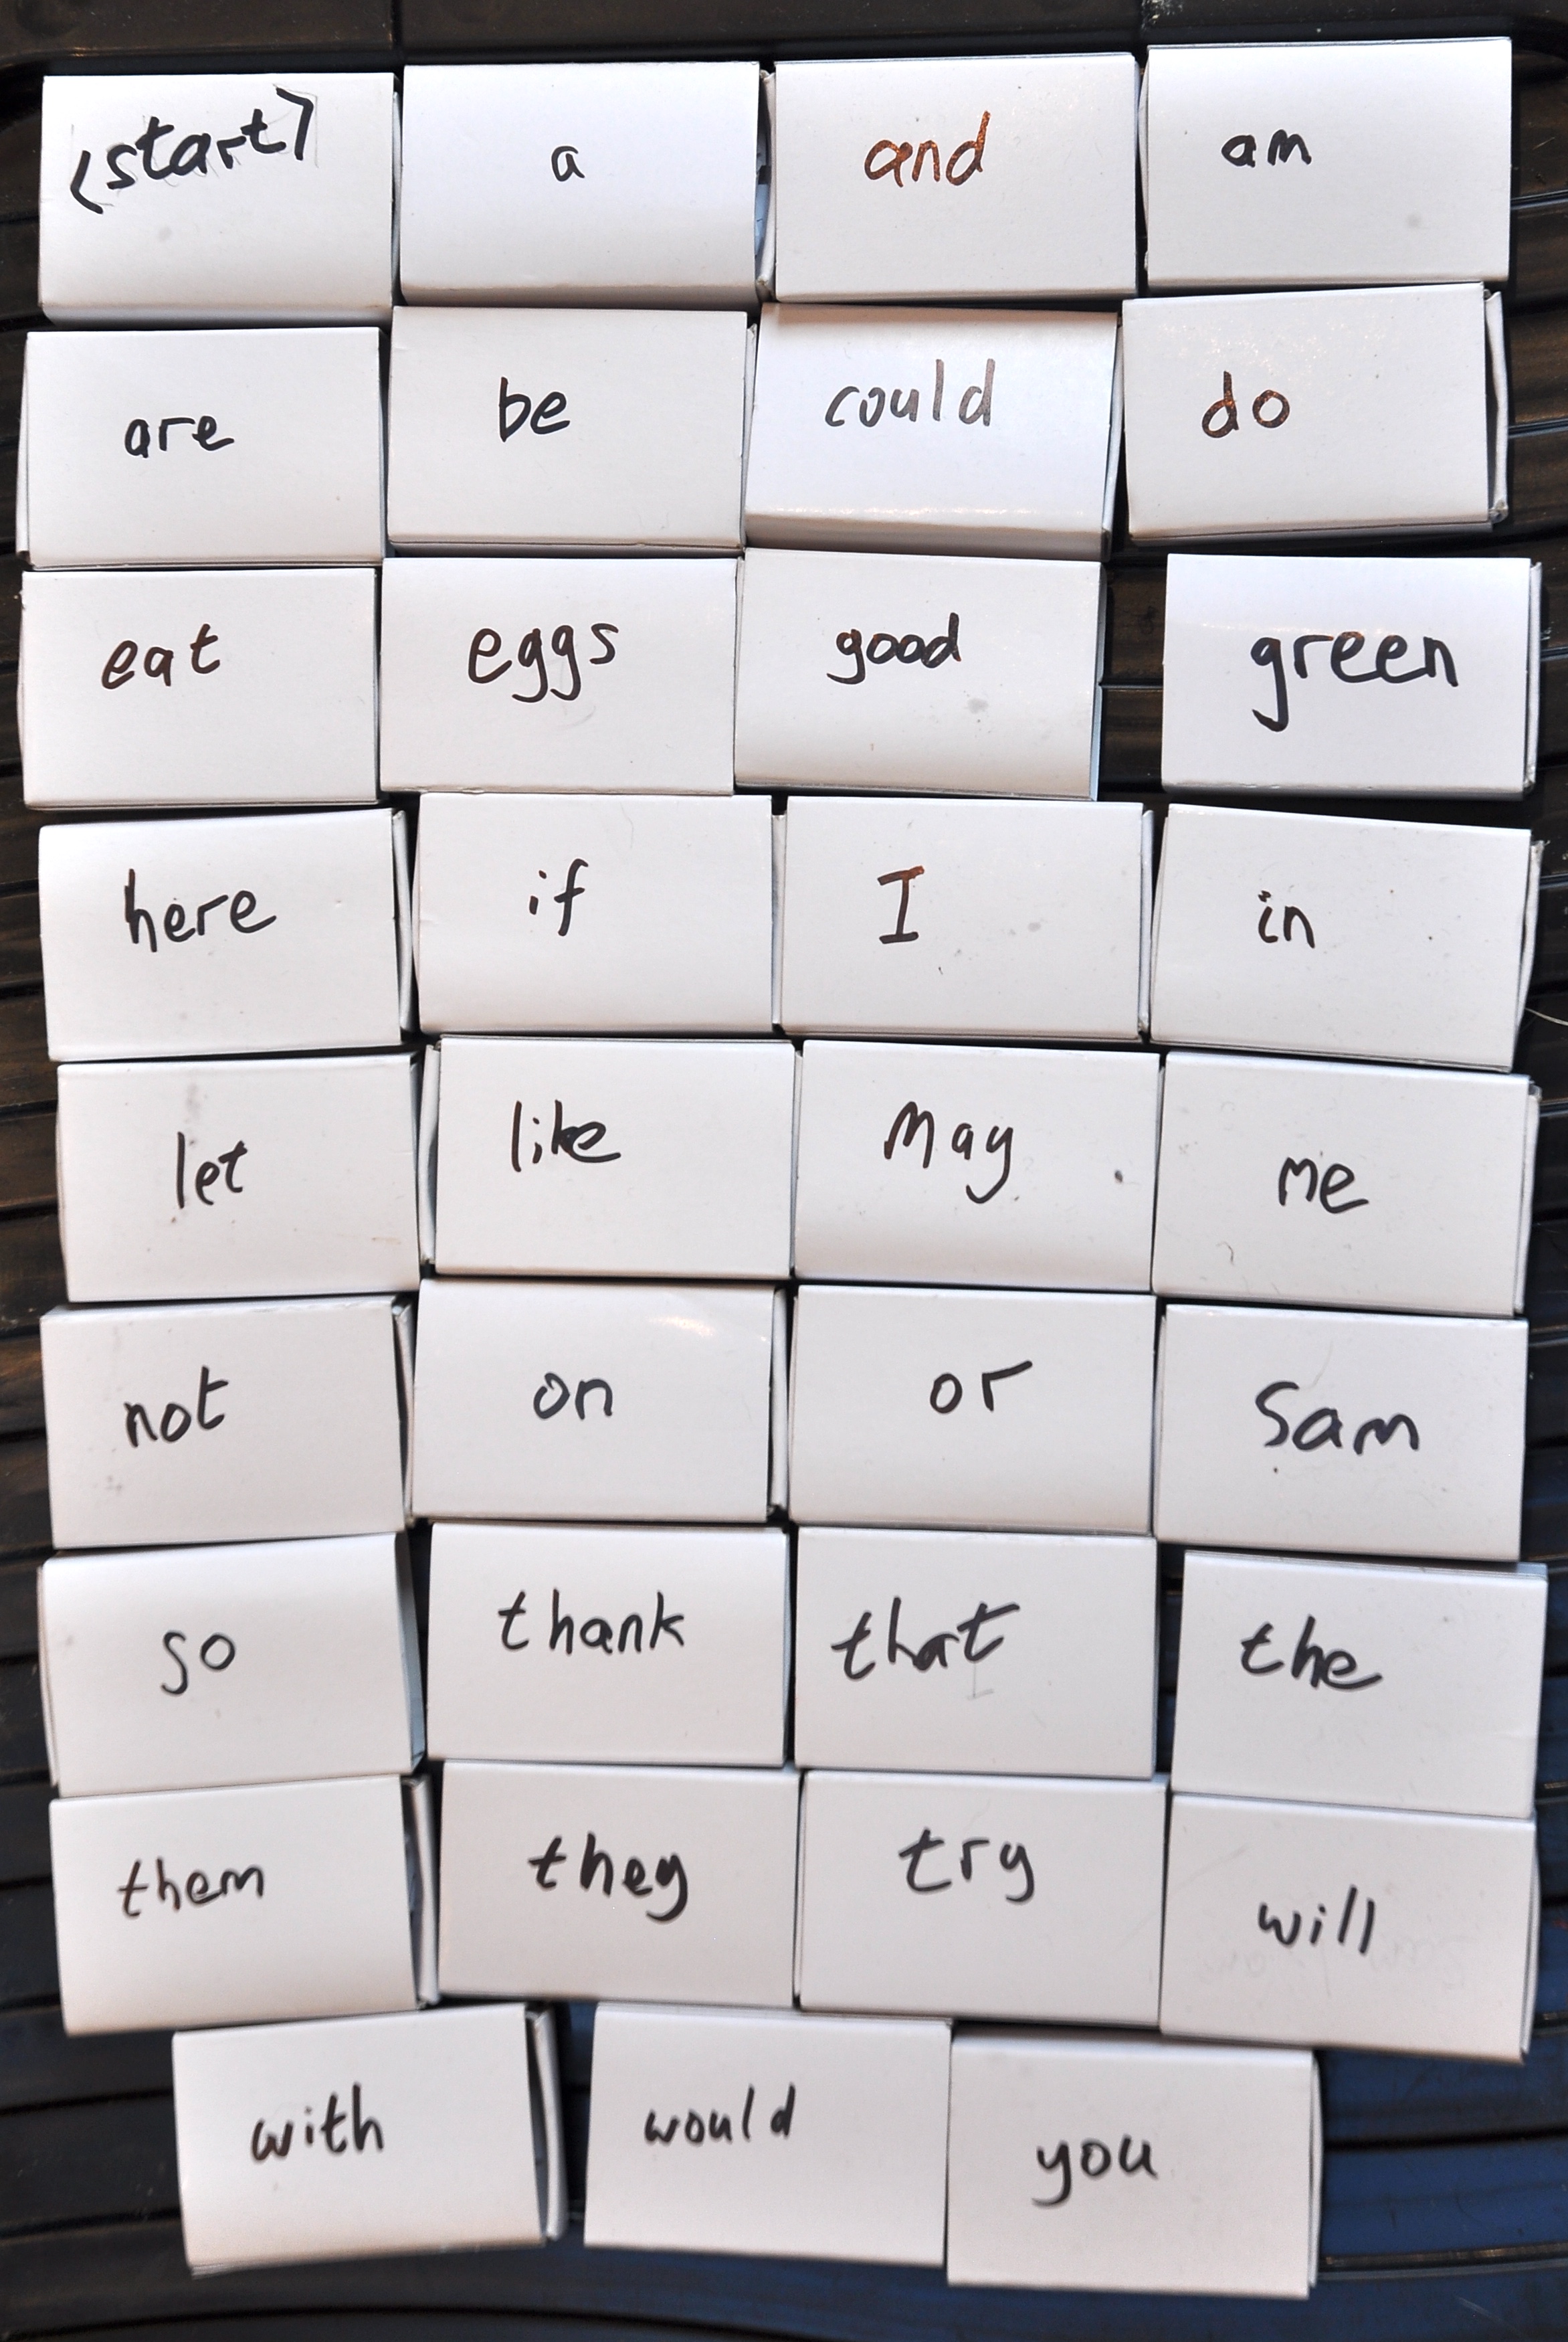 (start)
a
and
am
are
be
could
do
eat
eggs
good
green
here
if
I
in
let
like
May
me
not
on
or
Sam
so
thank
that
the
them
they
try
will
with
would
you